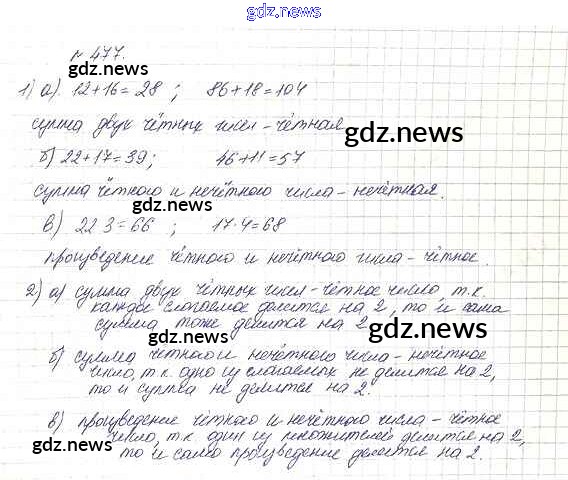 gdz.news
№ 477.
gdz.news
1) а). 12+16=28 ; 86+18=104
сумма двух чётных чисел - чётная.
gdz.news
б) 22+17=39; 46+11=57
gdz.news
сумма чётного и нечётного числа - нечётная.
gdz.news
в) 22·3=66 ; 17·4=68
произведение чётного и нечётного числа - чётное.
gdz.news
2) а) сумма двух чётных чисел - чётное число, т.к.
каждое слагаемое делится на 2, то и сама
сумма тоже делится на 2.
gdz.news
gdz.news
б) сумма чётного и нечётного числа - нечётное
число, т.к. одно из слагаемых не делится на 2,
то и сумма не делится на 2.
gdz.news
в) произведение чётного и нечётного числа - чётное
число, т.к. один из множителей делится на 2,
gdz.news
то и само произведение делится на 2.
gdz.news